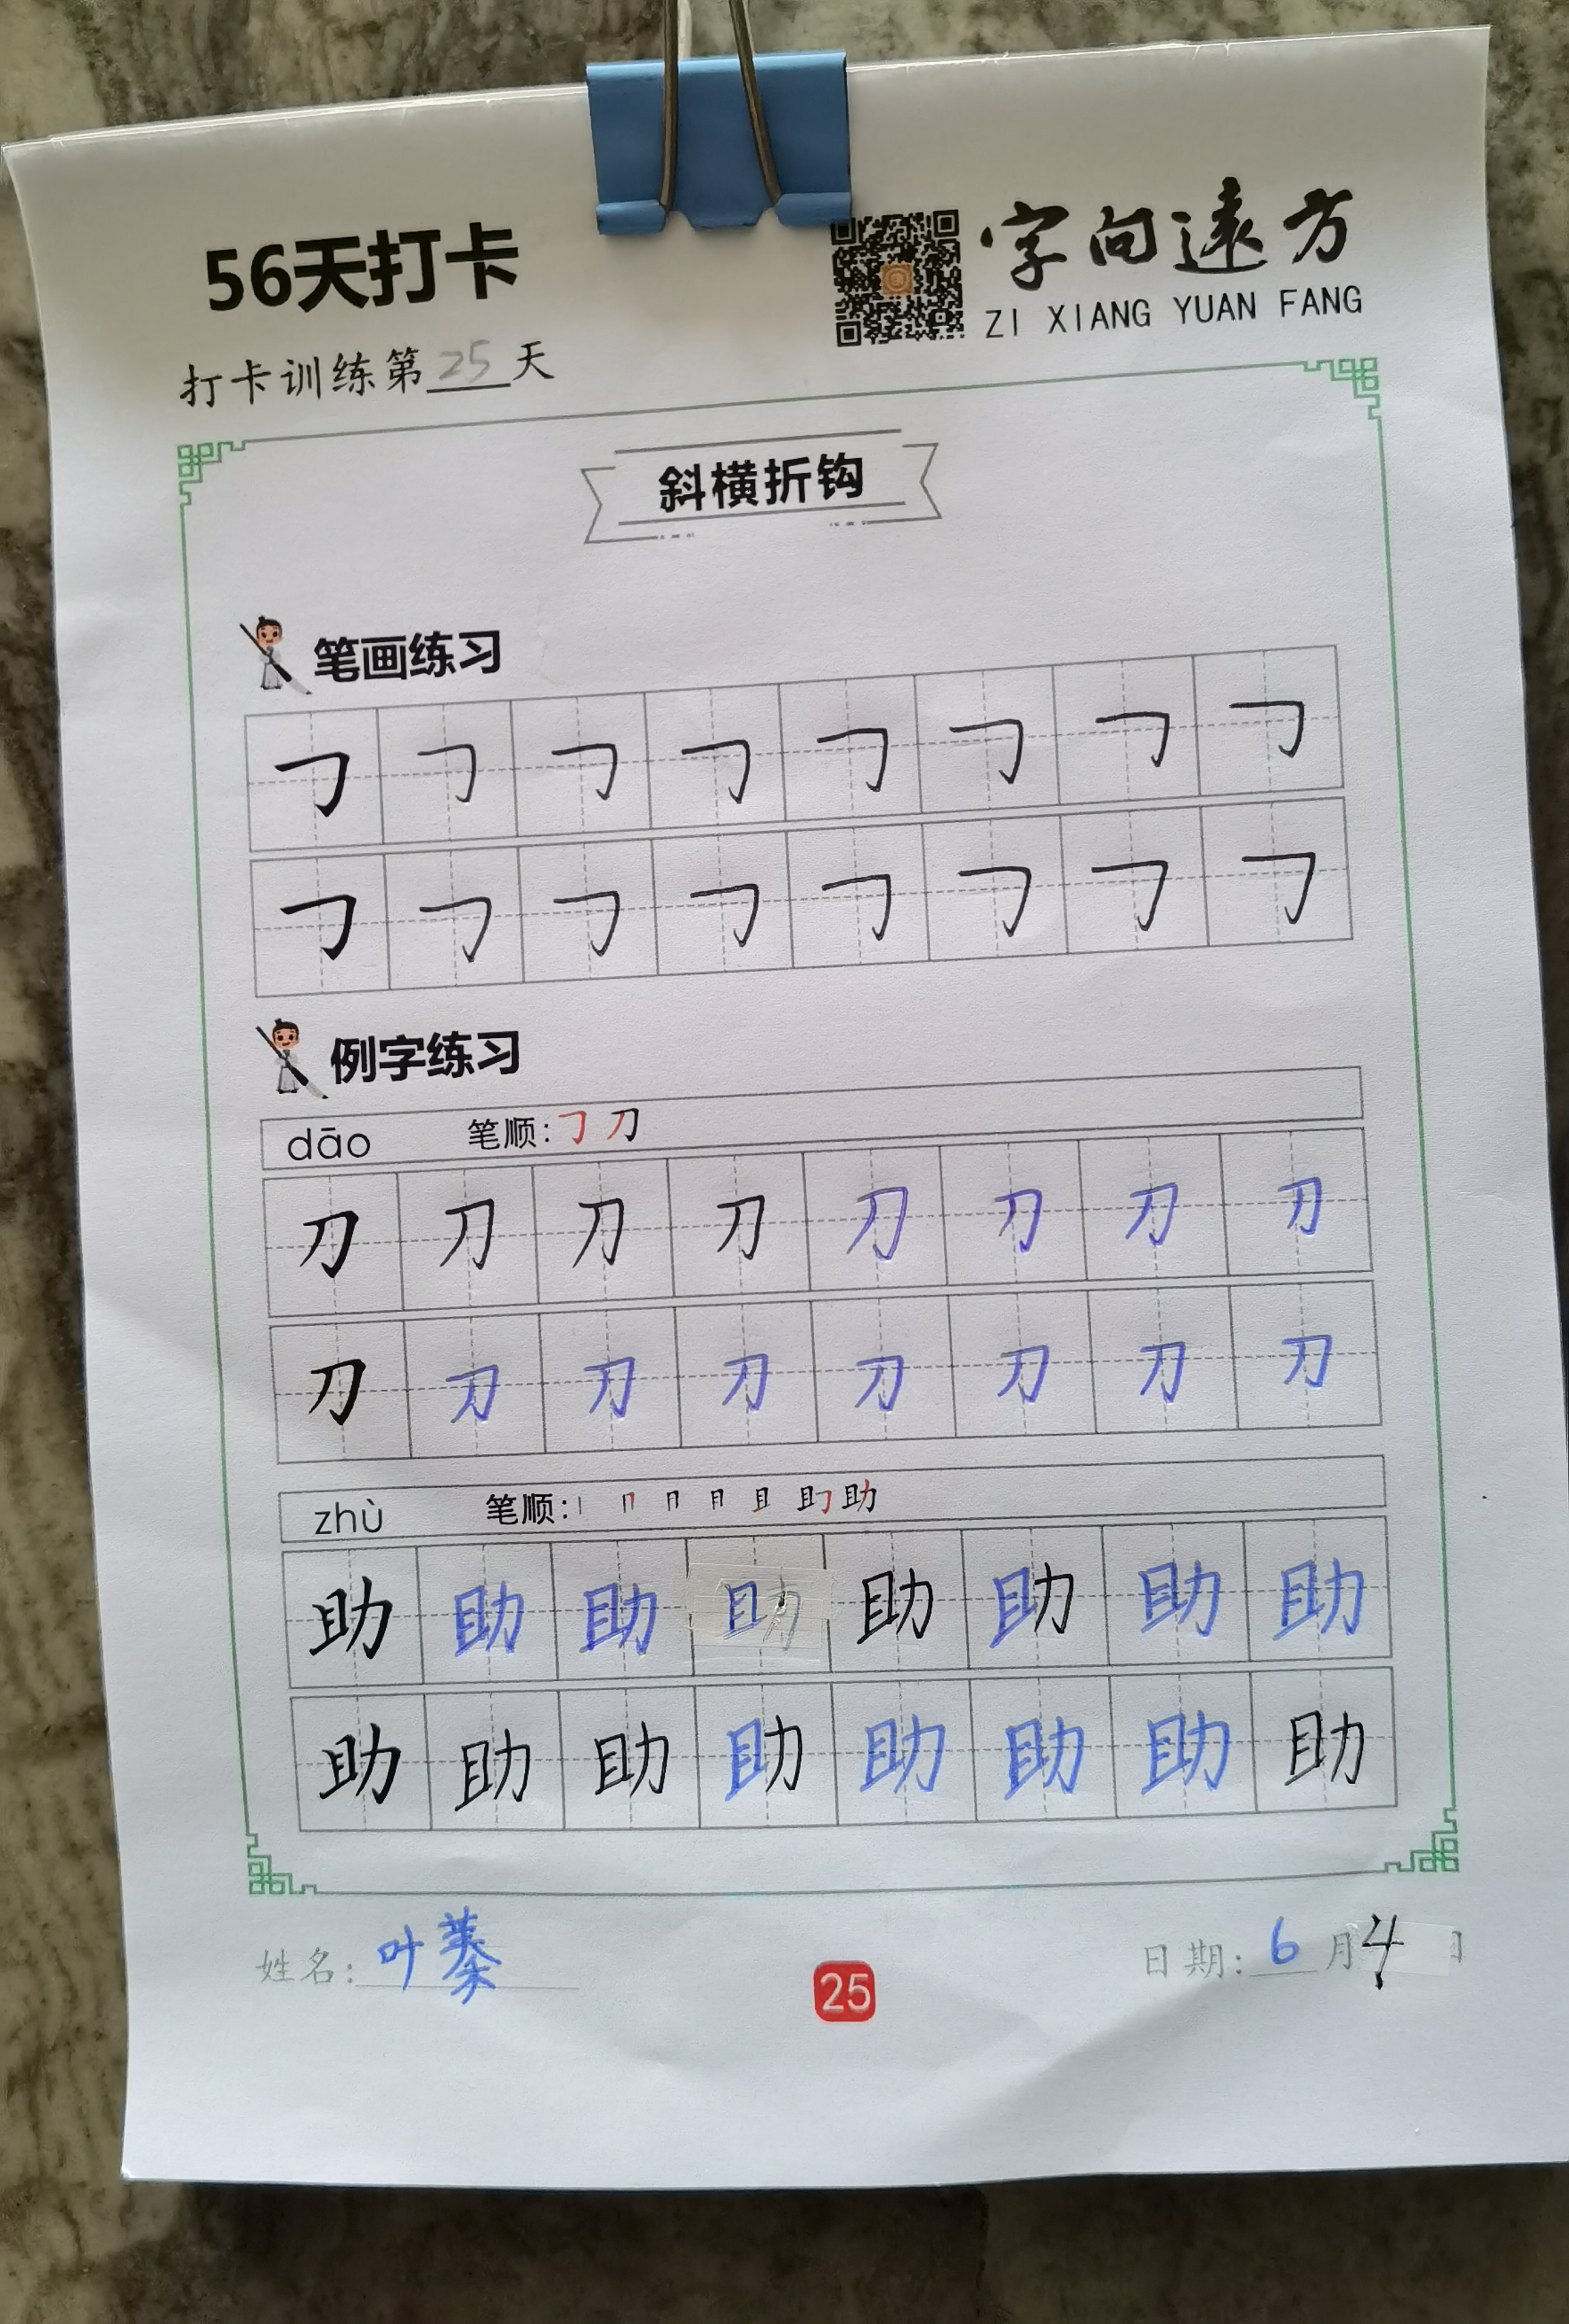 56天打卡
字向遠方
ZI XIANG YUAN FANG
打卡训练第25天
斜横折钩
笔画练习
㇆ ㇆ ㇆ ㇆ ㇆ ㇆ ㇆ ㇆
㇆ ㇆ ㇆ ㇆ ㇆ ㇆ ㇆ ㇆
例字练习
dāo 笔顺: ㇆ 刀
刀 刀 刀 刀 刀 刀 刀 刀
刀 刀 刀 刀 刀 刀 刀 刀
zhù 笔顺: 丨 冂 月 且 助
助 助 助 助 助 助 助 助
助 助 助 助 助 助 助 助
姓名: 叶蓁
25
日期: 6月4